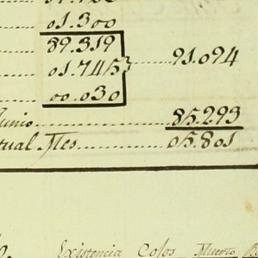 01.300
89.319
01.745 91.094
00.030
unio 85.293
tual Mes 05.801
Existencia Colos Muerto